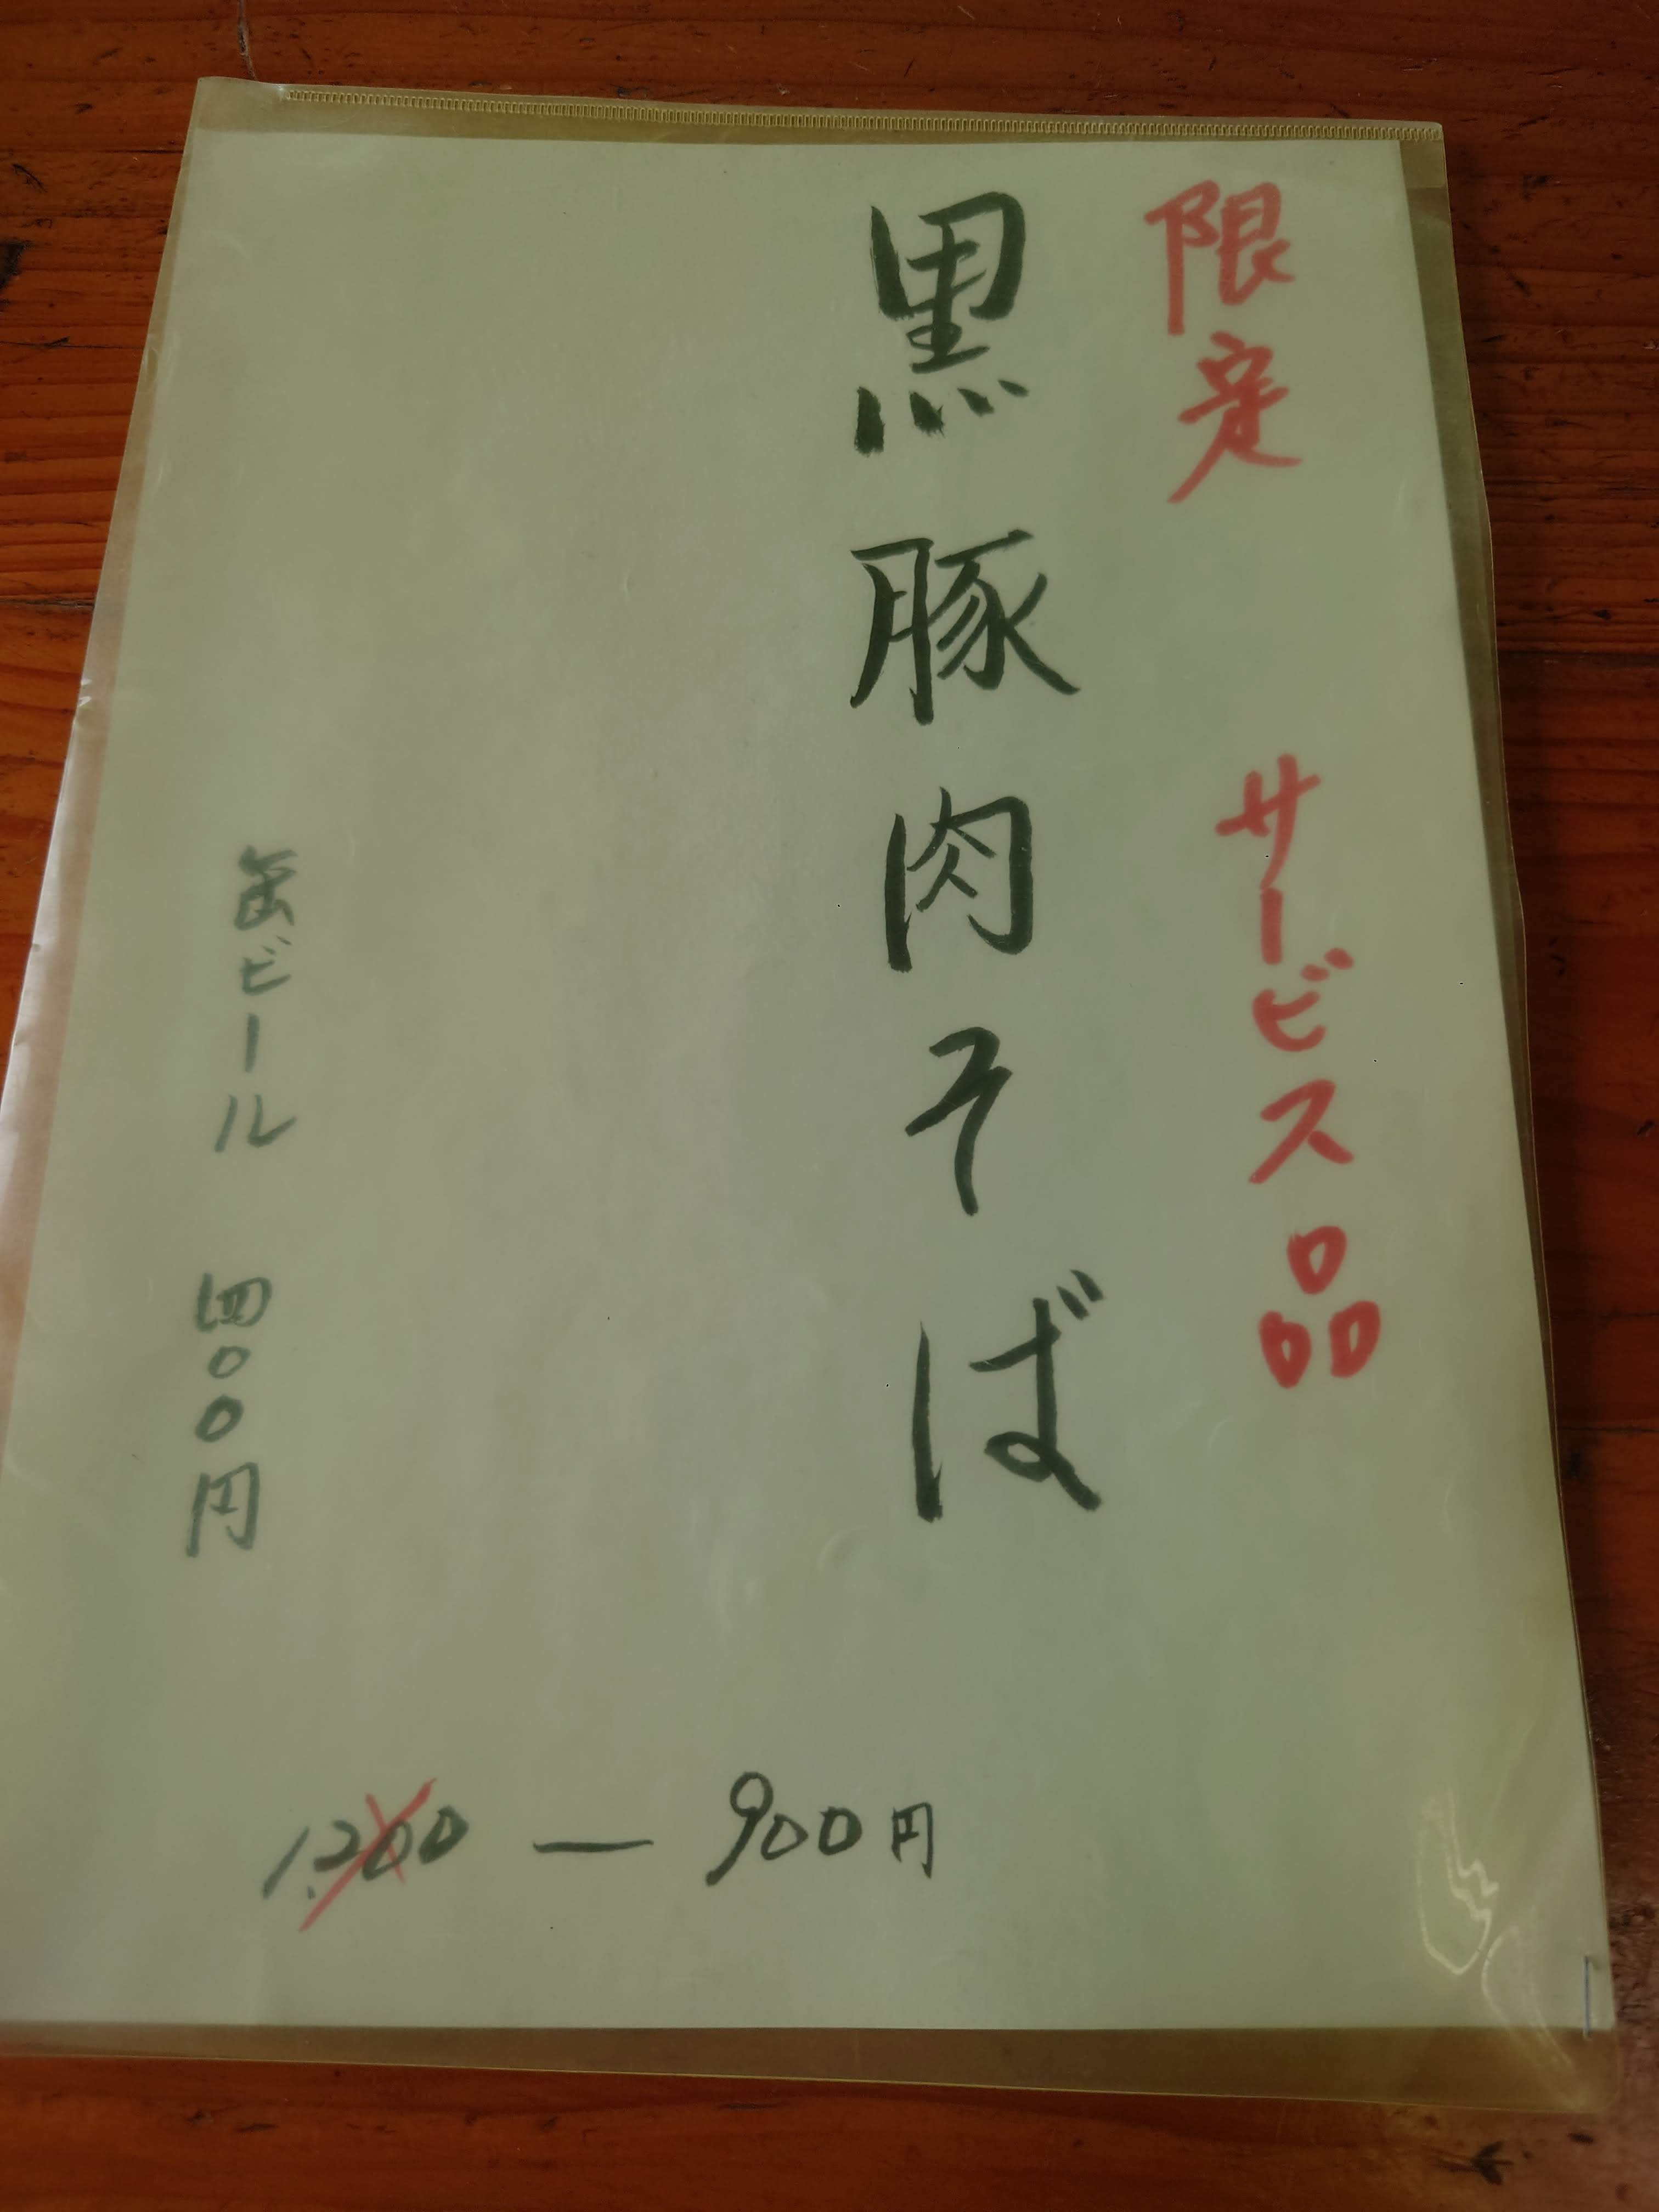 限定 サービス品
黒豚肉そば
缶ビール 四〇〇円
1,200 — 900円